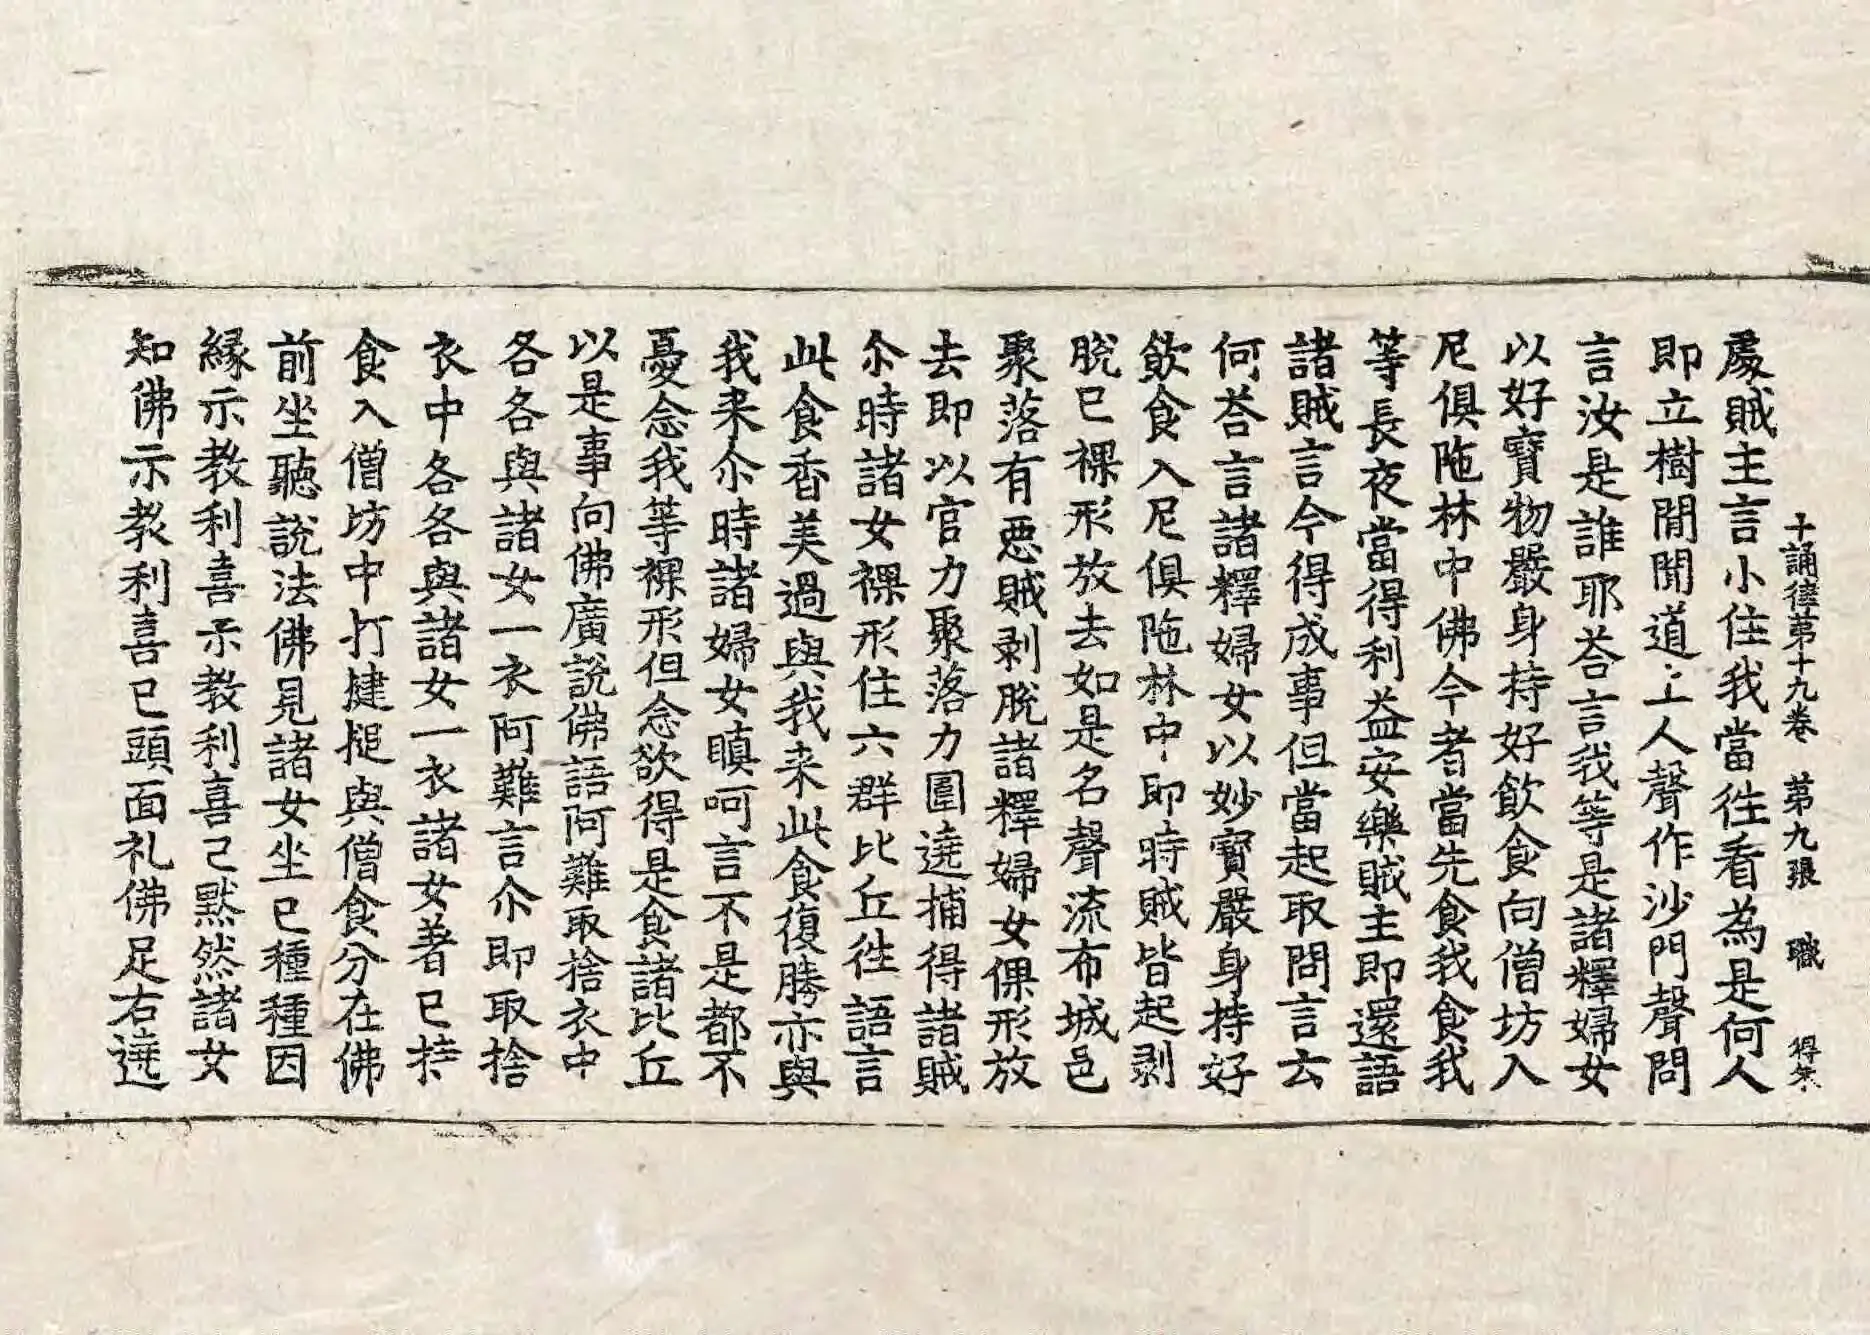 十誦律第十九卷 第九張 職 得朱
處賊主言小住我當往看為是何人
即立樹間聞道上人聲作沙門聲問
言汝是誰耶荅言我等是諸釋婦女
以好寶物嚴身持好飲食向僧坊入
尼俱陁林中佛今者當先食我食我
等長夜當得利益安樂賊主即還語
諸賊言今得成事但當起取問言云
何荅言諸釋婦女以妙寶嚴身持好
飲食入尼俱陁林中即時賊皆起剥
脫已裸形放去如是名聲流布城邑
聚落有惡賊剥脫諸釋婦女倮形放
去即以官力聚落力圍遶捕得諸賊
尒時諸女裸形住六群比丘往語言
此食香美過與我来此食復勝亦與
我来尒時諸婦女瞋呵言不是都不
憂念我等裸形但念欲得是食諸比丘
以是事向佛廣說佛語阿難取捨衣中
各各與諸女一衣阿難言尒即取捨
衣中各各與諸女一衣諸女著已持
食入僧坊中打揵搥與僧食分在佛
前坐聽說法佛見諸女坐已種種因
緣示教利喜示教利喜已默然諸女
知佛示教利喜已頭面礼佛足右遶